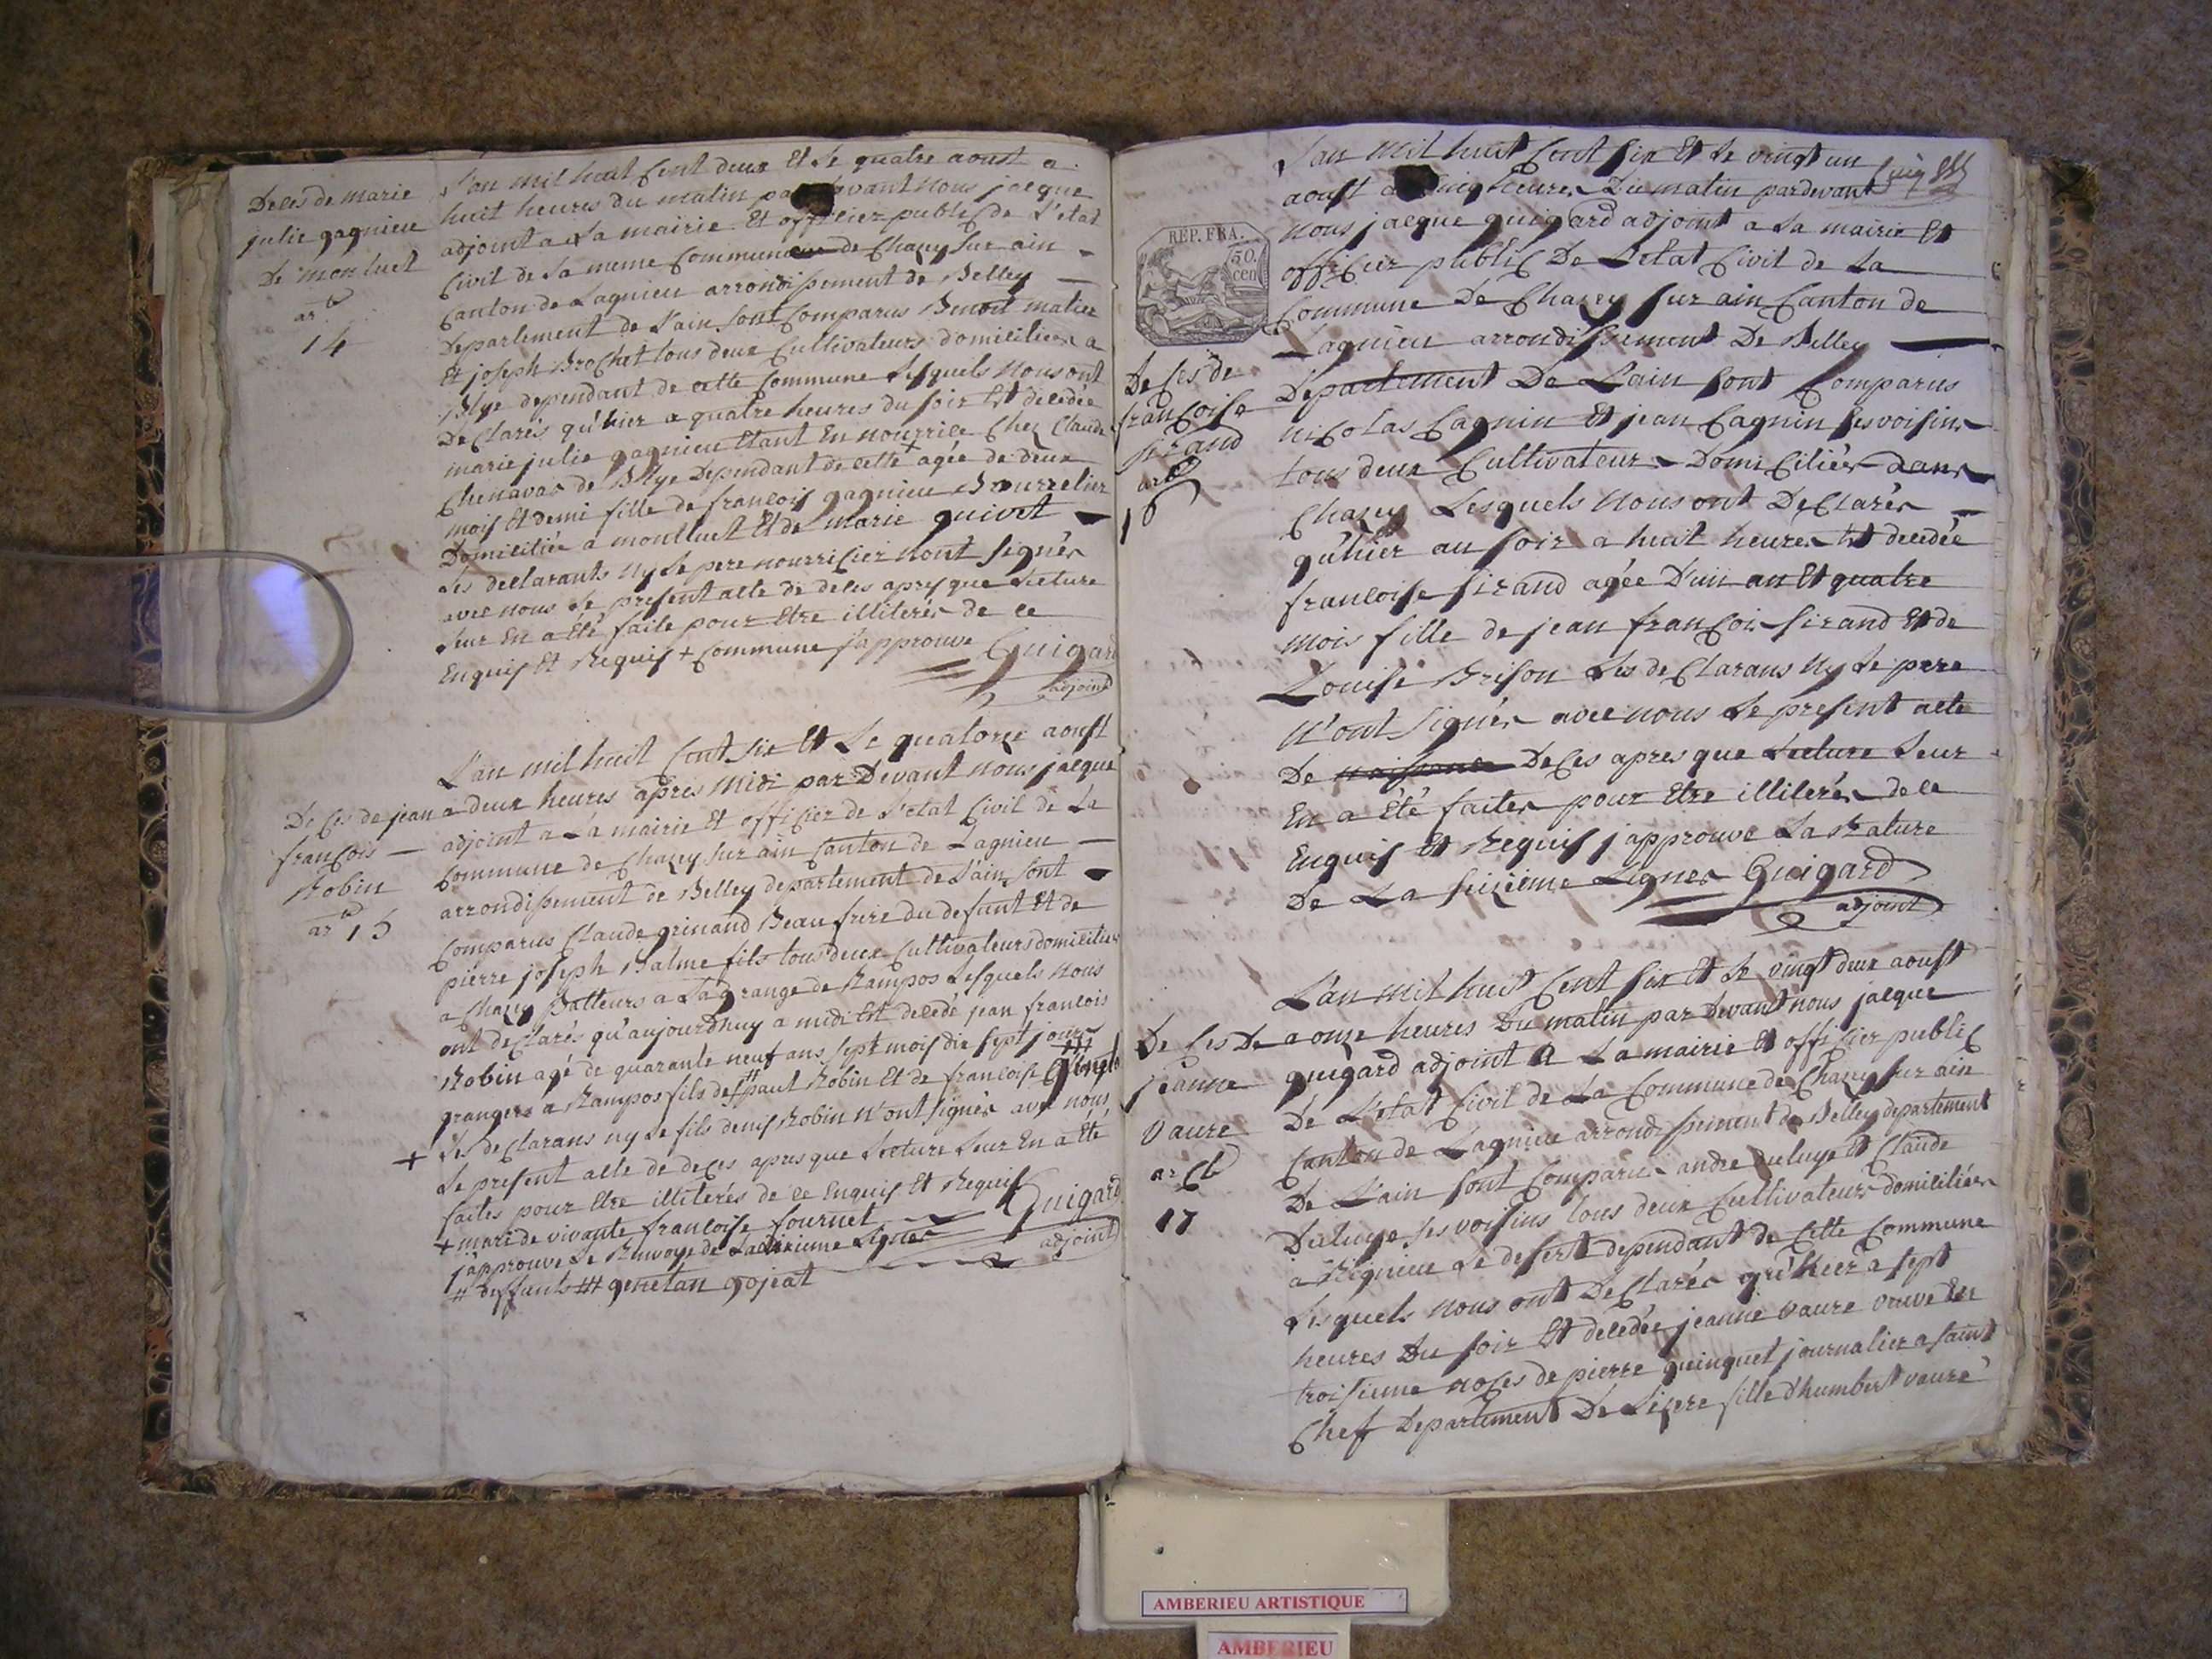 Deces de marie
julie gagnieu
De monluel
ar^le
14
L'an mil huit Cent deux Et Le quatre aoust a
huit heures du matin par devant nous jacque
adjoint a La mairie Et officier public de L'etat
Civil de La meme Commune de Chazey Sur ain
Canton de Lagnieu arrondissement de Belley
Departement de L'ain Sont Comparus Benoit matier
Et joseph Brochet tous deux Cultivateurs domiciliées a
Blye dependant de cette Commune Lesquels Nous ont
DeClarés qu'hier a quatre heures du soir Est decedée
marie julie gagnieu Etant En nourrice Chez Claude
Chenavas de Blye Dependant de cette agée de deux
mois Et demi fille de françois gagnieu Bourrelier
Domiciliée a montluel Et de marie guivet
Les declarants Ny Le pere nourricier N'ont Signés
avec nous Le present acte de deces apres que Lecture
Leur En a Eté faite pour Etre illiterés de ce
Enquis Et Requis + Commune J'approuve Guigard
adjoint
DeCes de jean
franÇois
Robin
ar^le 15
L'an mil huit Cent Six Et Le quatorze aoust
a deux heures apres Midi par Devant nous jacque
adjoint a La mairie Et officier de L'etat Civil de La
Commune de Chazey Sur ain Canton de Lagnieu
arrondissement de Belley departement de L'ain Sont
Comparus Claude grinand Beau frere du defunt Et de
pierre joseph Balme fils tous deux Cultivateurs domiciliés
a Chazey Batteurs a La grange de Rampos Lesquels Nous
ont deClarés qu'aujourdhuy a midi Est decedé jean francois
Robin agé de quarante neuf ans Sept mois dix Sept jours
grangers a Rampos fils de # paul Robin Et de francoise ###
+ Les deClarans ny Le fils denis Robin N'ont Signés avec nous
Le present acte de deces apres que Lecture Leur En a Eté
faites pour Etre illiterés de ce Enquis Et Requis
+ mari de vivante francoise fournet Guigard
j'approuve Le Renvoye de La dixieme Lignes adjoint
# deffunts ### genetan gojeat
Cinq
REP. FRA.
50.
cen
DeCes de
franÇoise
sirand
ar^le
16
L'an Mil huit Cent Six Et Le vingt un
aoust a Cinq heures Du matin pardevant
Nous jacque guigard adjoint a La mairie Et
officier public De L'etat Civil de La
Commune De Chazey Sur ain Canton de
Lagnieu arrondissement De Belley
Departement De L'ain Sont Comparus
NiColas Cagnin Et jean Cagnin Ses voisins
tous deux Cultivateurs DomiCiliés dans
Chazey Lesquels Nous ont DeClarés
qu'hier au soir a huit heures Est decedée
francoise Sirand agée D'un an Et quatre
mois fille de jean franÇois Sirand Et de
Louise Brison Les deClarans Ny Le pere
N'ont Signés avec nous Le present acte
De naissance DeCes apres que Lecture Leur
En a Eté faites pour Etre illiterés de ce
Enquis Et Requis j'approuve La Rature
De La Seizieme Lignes Guigard
adjoint
DeCes De
jeanne
vaure
ar^cle
17
L'an mil huit Cent Six Et Le vingt deux aoust
a onze heures Du matin par Devant nous jacque
guigard adjoint a La mairie Et officier public
De L'etat Civil de La Commune de Chazey Sur ain
Canton de Lagnieu arrondissement de Belley departement
De L'ain Sont Comparus andre Ducluye Et Claude
Ducluye Ses voisins tous deux Cultivateurs domiciliés
a Rignieu Le desert dependant de Cette Commune
Lesquels nous ont DeClarés qu'hier a Sept
heures Du Soir Est decedée jeanne vaure veuve En
troisieme noCes de pierre guinguet journalier a Saint
Chef Departement De L'isere fille d'humbert vaure
AMBERIEU ARTISTIQUE
AMBERIEU